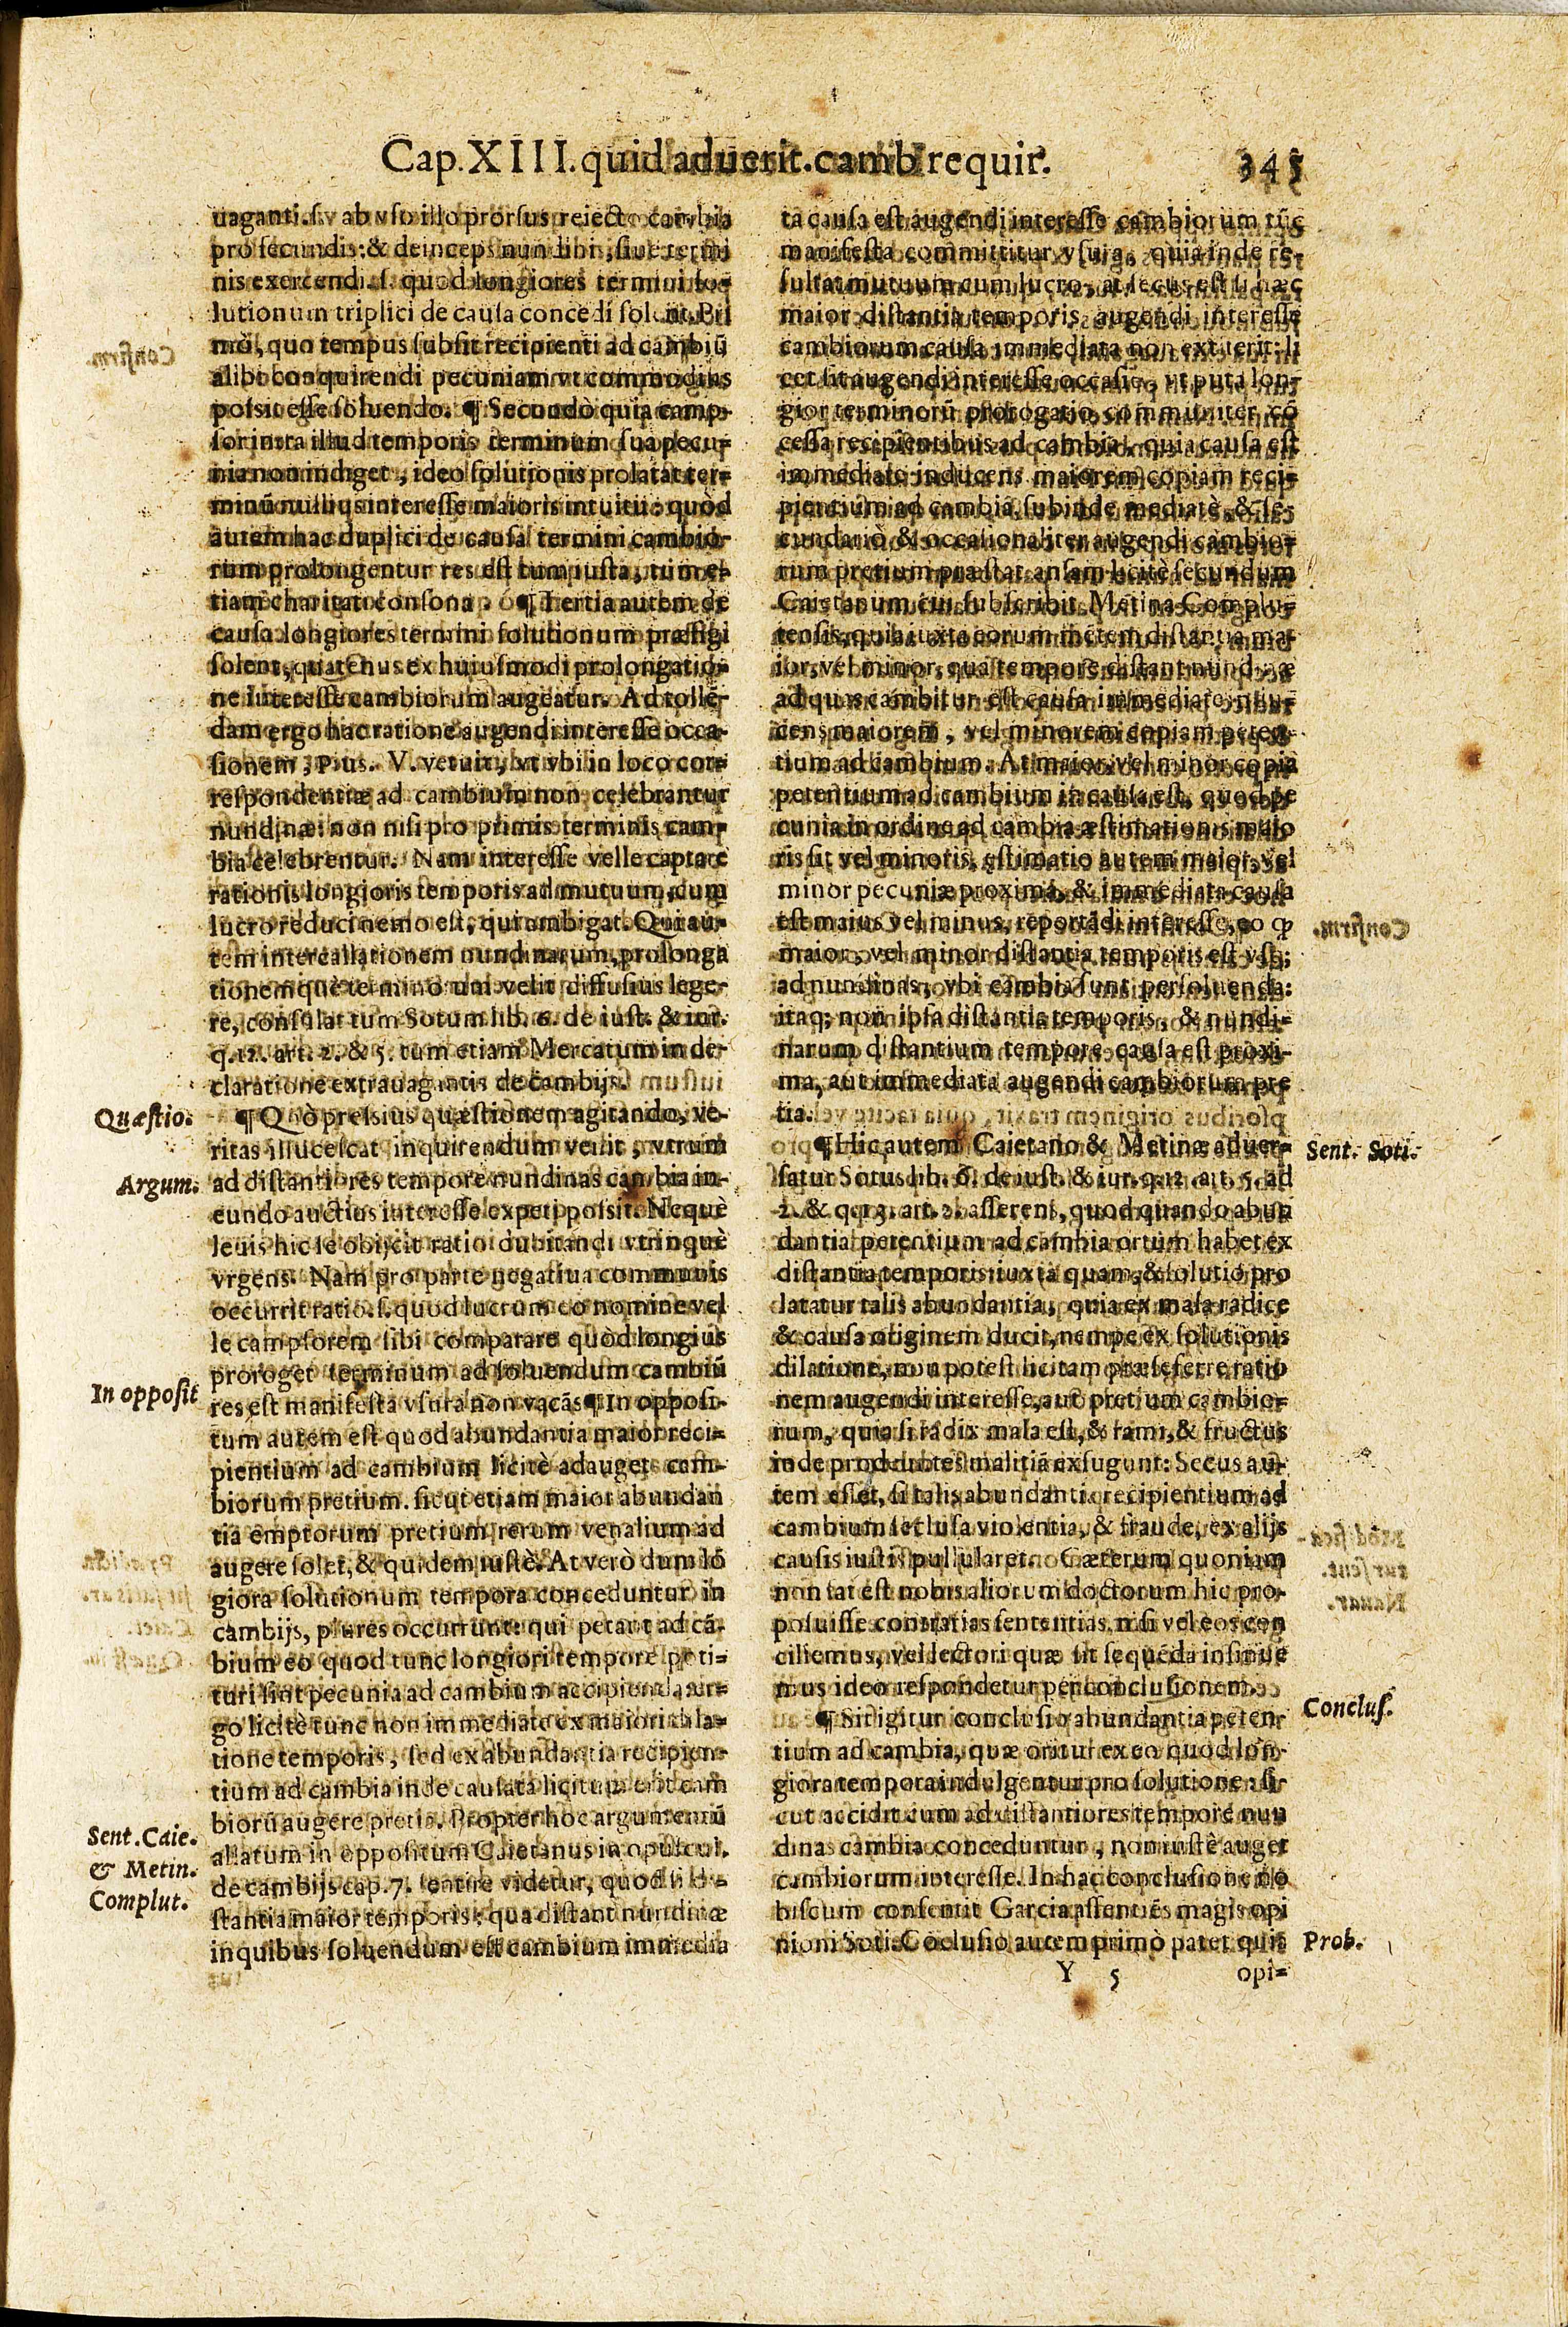 Cap. XIII. quid ad verit. camb requir. 345
uaganti. s. v ab vsu illo prorsus reiecto cambia
pro secundis: & deinceps nundinis, siue termi
nis exercendi. s. quod longiores termini so-
lutionum triplici de causa concedi solent. Pri
mò, quo tempus subsit recipienti ad cambiũ
alibi conquirendi pecuniam vt commodius
possit esse soluendo. ¶ Secundò quia camp-
sor intra illud temporis terminum sua pecu-
nia non indiget, ideo solutionis prolatat ter-
minũ nullius interesse maioris intuitu: quòd
autem hac duplici de causa termini cambio-
rum prolongentur res est tum iusta, tum e-
tiam charitati consona. ¶ Tertia autem de
causa longiores termini solutionum præfigi
solent, quatenus ex huiusmodi prolongatio-
ne interesse cambiorum augeatur. Ad tollē-
dam ergo hac ratione augendi interesse occa-
sionem, Pius. V. vetuit, vt vbi in loco cor-
respondentiæ ad cambium non celebrantur
nundinæ: non nisi pro primis terminis cam-
bia celebrentur. Nam interesse velle captare
rationis longioris temporis ad mutuum, cum
lucro reduci nemo est, qui ambigat. Qui au-
tem intercallationem nundinarum, prolonga
tionemquè terminorum velit diffusius lege-
re, consulat tum Sotum lib. 6. de iust. & iur.
q. 12. art. 2. & 5. tum etiam Mercatum in de-
claratione extrauagantis de cambijs.
Quæstio. ¶ Quò pressius quæstionem agitando, ve-
ritas illucescat inquirendum venit, vtrum
Argum. ad distantiores tempore nundinas cambia in-
eundo auctius interesse expeti possit. Nequè
leuis hic se obijcit ratio dubitandi vtrinquè
vrgens. Nam pro parte negatiua communis
occurrit ratio. s. quod lucrum eo nomine vel
le campsorem sibi comparare quòd longius
proroget terminum ad soluendum cambiũ
In opposit res est manifesta vsura non vacãs ¶ In opposi-
tum autem est quod abundantia maior reci-
pientium ad cambium licitè adauget cam-
biorum pretium. sicut etiam maior abundan
tia emptorum pretium rerum venalium ad
augere solet, & quidem iustè. At verò dum lõ
giora solutionum tempora conceduntur in
cambijs, plures occurrunt: qui petant ad cã-
bium eo quod tunc longiori tempore poti-
turi sint pecunia ad cambium accipienda, er-
go licitè tunc non immediate ex maiori dila-
tione temporis, sed ex abundantia recipien-
tium ad cambia inde causata licitum erit cam
biorũ augere pretia. Propter hoc argumentũ
Sent. Caie. & Metin. Complut. allatum in oppositum Caietanus in opuscul.
de cambijs cap. 7. sentire videtur, quod si di-
stantia maior temporis: qua distant nundinæ
in quibus soluendum est cambium immedia
ta causa est augendi interesse cambiorum tũc
manifesta committitur vsura, quia inde re-
sultat mutuum cum lucro, at secus est si hæc
maior distantia temporis augendi interesse
cambiorum causa immediata non extiterit: li
cet sit augendi interesse occasio, vt puta lon-
gior terminorũ prorogatio, communiter cõ
cessa recipientibus ad cambia, quia causa est
immediatè inducens maiorem copiam reci-
pientium ad cambia, subinde mediatè, & se-
cundariò & occasionaliter augendi cambio-
rum pretium præstat ansam licitè secundum
Caietanum, cui subscribit Metina Complu-
tensis, quia iuxta eorum mētem distantia mai
ior, vel minor, qua tempore distant nundinæ
ad quas cambitur est causa immediate indu-
cens maiorem, vel minorem copiam peten-
tium ad cambium. At maior, vel minor copia
petentium ad cambium in causa est, quod pe
cunia in ordine ad cambia æstimationis maio
ris sit vel minoris, æstimatio autem maior, vel
minor pecuniæ proxima, & immediata causa
est maius vel minus, reportãdi interesse, eo ꝙ
maior, vel minor distantia temporis est vsq;
ad nundinas, vbi cambia sunt persoluenda:
itaq; non ipsa distantia temporis, & nundi-
narum distantium tempore causa est proxi-
ma, aut immediata augendi cambiorum pre
tia.
¶ Hic autem Caietano & Metinæ aduer- Sent. Soti.
satur Sotus lib. 6. de iust. & iur. q. 12. art. 5. ad
2. & q. 13. art. 2. asserens, quod quando abun
dantia petentium ad cambia ortum habet ex
distantia temporis iuxta quam, & solutio pro
latatur talis abundantia, quia ex mala radice
& causa originem ducit, nempe ex solutionis
dilatione, non potest licitam præseferre ratio
nem augendi interesse, aut pretium cambio-
rum, quia si radix mala est, & rami, & fructus
inde prodeuntes malitiã exsugunt: Secus au-
tem esset, si talis abundantia recipientium ad
cambium seclusa violentia, & fraude, ex alijs
causis iustis pullularet. Cæterum quoniam
non sat est nobis aliorum doctorum hic pro-
posuisse contrarias sententias, nisi vel eos con
ciliemus, vel lectori quæ sit sequēda insinue
mus ideo respondetur per conclusionem.
¶ Sit igitur conclusio abundantia peten- Conclus.
tium ad cambia, quæ oritur ex eo quod lon-
giora tempora indulgentur pro solutione: si-
cut accidit cum ad distantiores tempore nun
dinas cambia conceduntur, non iustè auget
cambiorum interesse. In hac conclusione no
biscum consentit Garcia assentiēs magis opi
nioni Soti. Cõclusio autem primò patet quia Prob.
Y 5 opi-